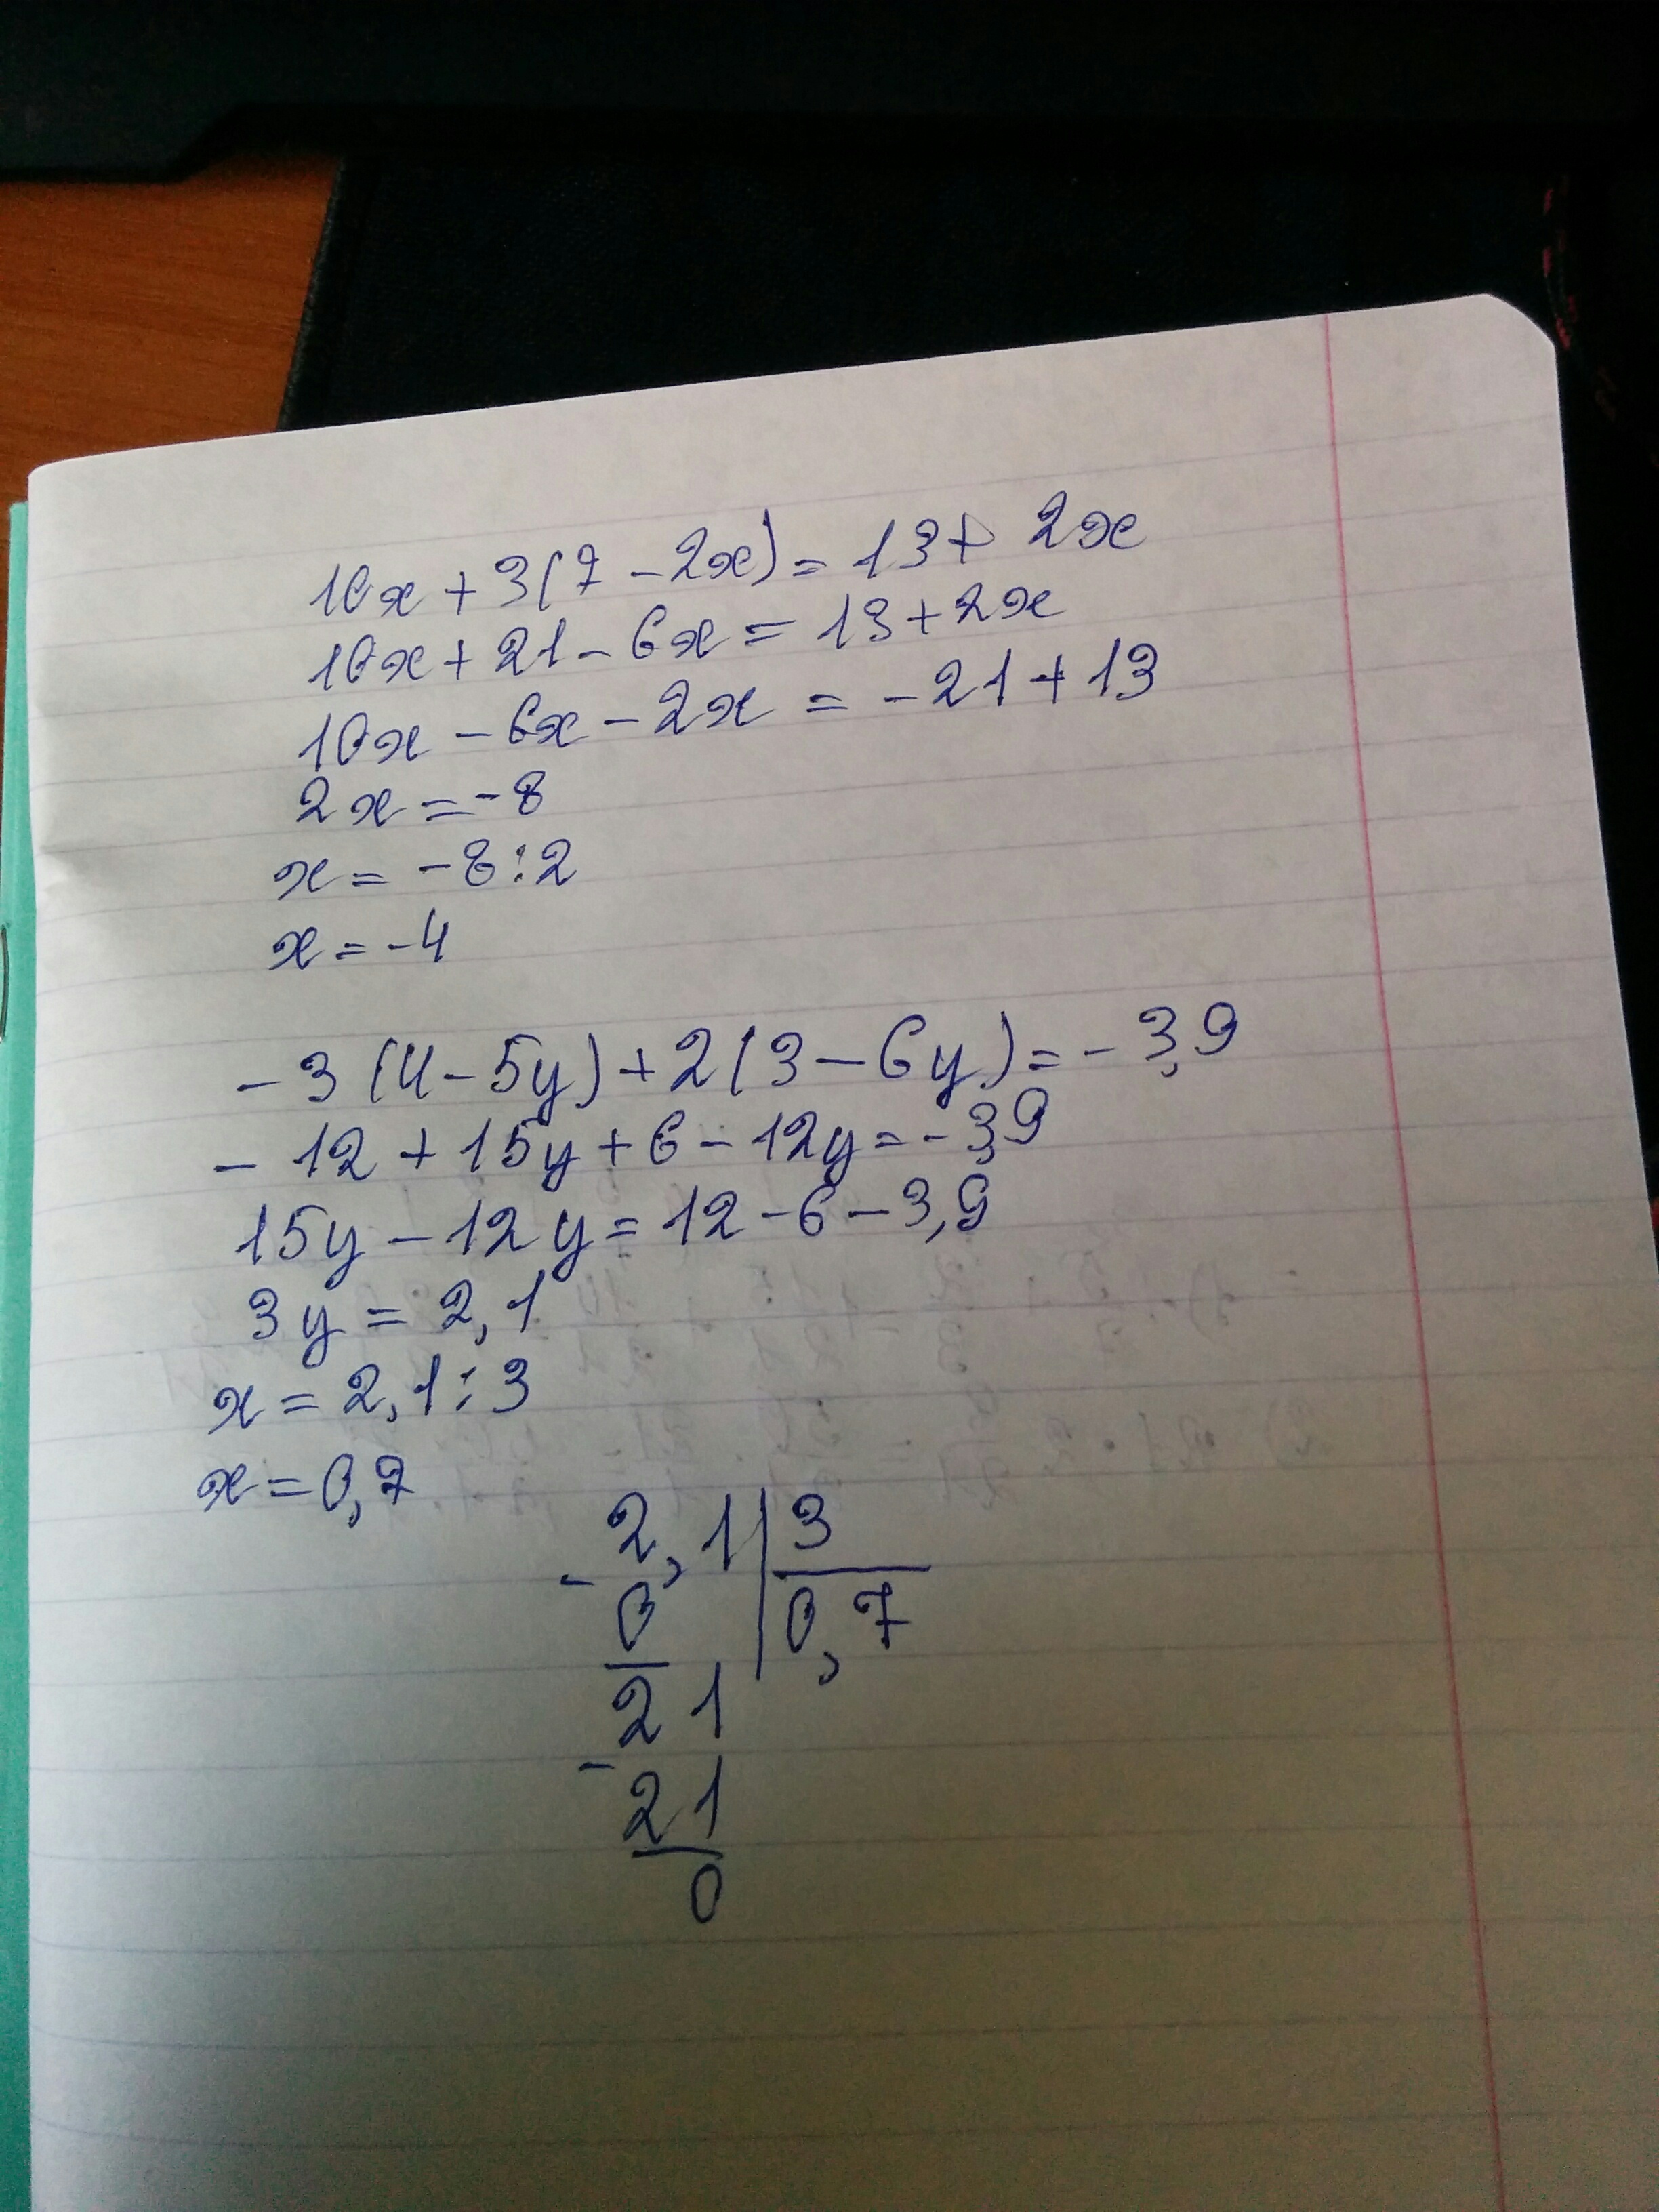 10x + 3(7 - 2x) = 13 + 2x
10x + 21 - 6x = 13 + 2x
10x - 6x - 2x = -21 + 13
2x = -8
x = -8:2
x = -4
-3(4 - 5y) + 2(3 - 6y) = -3,9
-12 + 15y + 6 - 12y = -3,9
15y - 12y = 12 - 6 - 3,9
3y = 2,1
x = 2,1:3
x = 0,7
- 2,1 | 3
0 | 0,7
21
-
21
0